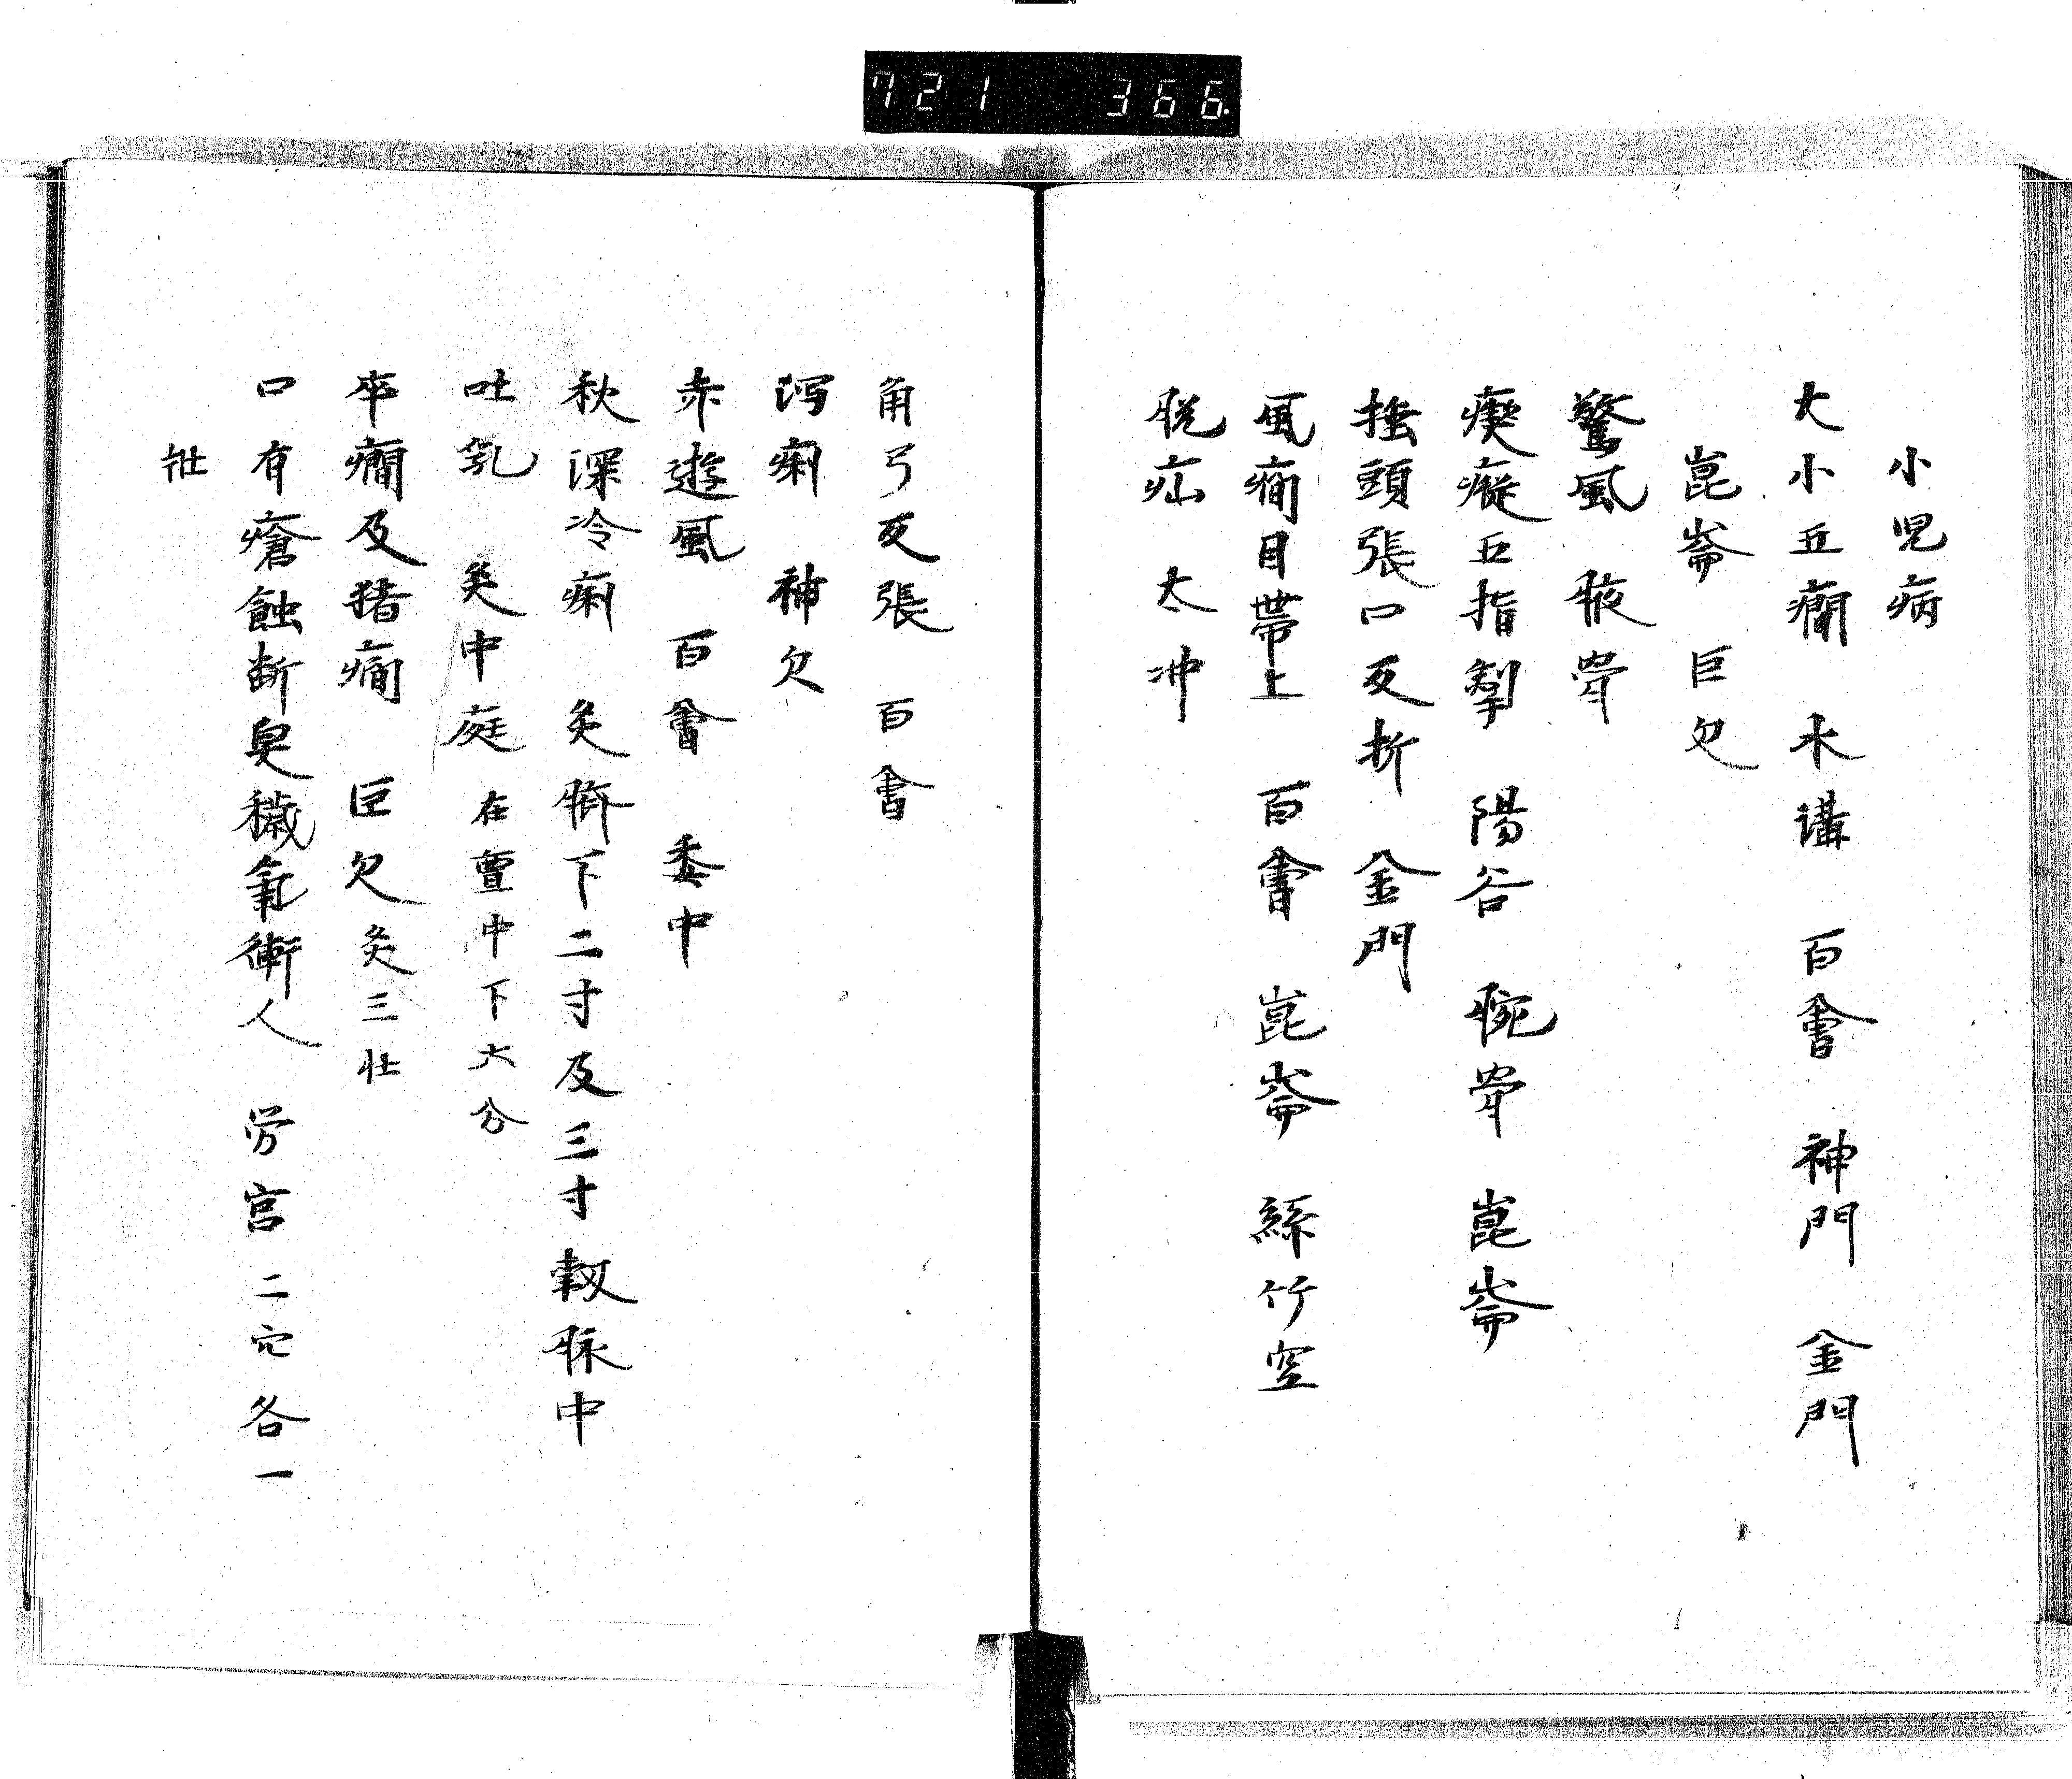 721 366
小児病
大小五癎 水溝 百會 神門 金門
崑崙 巨欠
驚風 腕骨
瘈瘲五指掣 陽谷 腕骨 崑崙
揺頭張口反折 金門
風癇目帯上 百會 崑崙 絲竹空
脱疝 太冲
角弓反張 百會
泻痢 神欠
赤遊風 百會 委中
秋深冷痢 灸臍下二寸及三寸動脉中
吐乳 灸中庭 在亶中下六分
卒癎及猪癇 巨欠灸三壮
口有瘡蝕断臭穢氣衝人 労宮二穴各一
壮